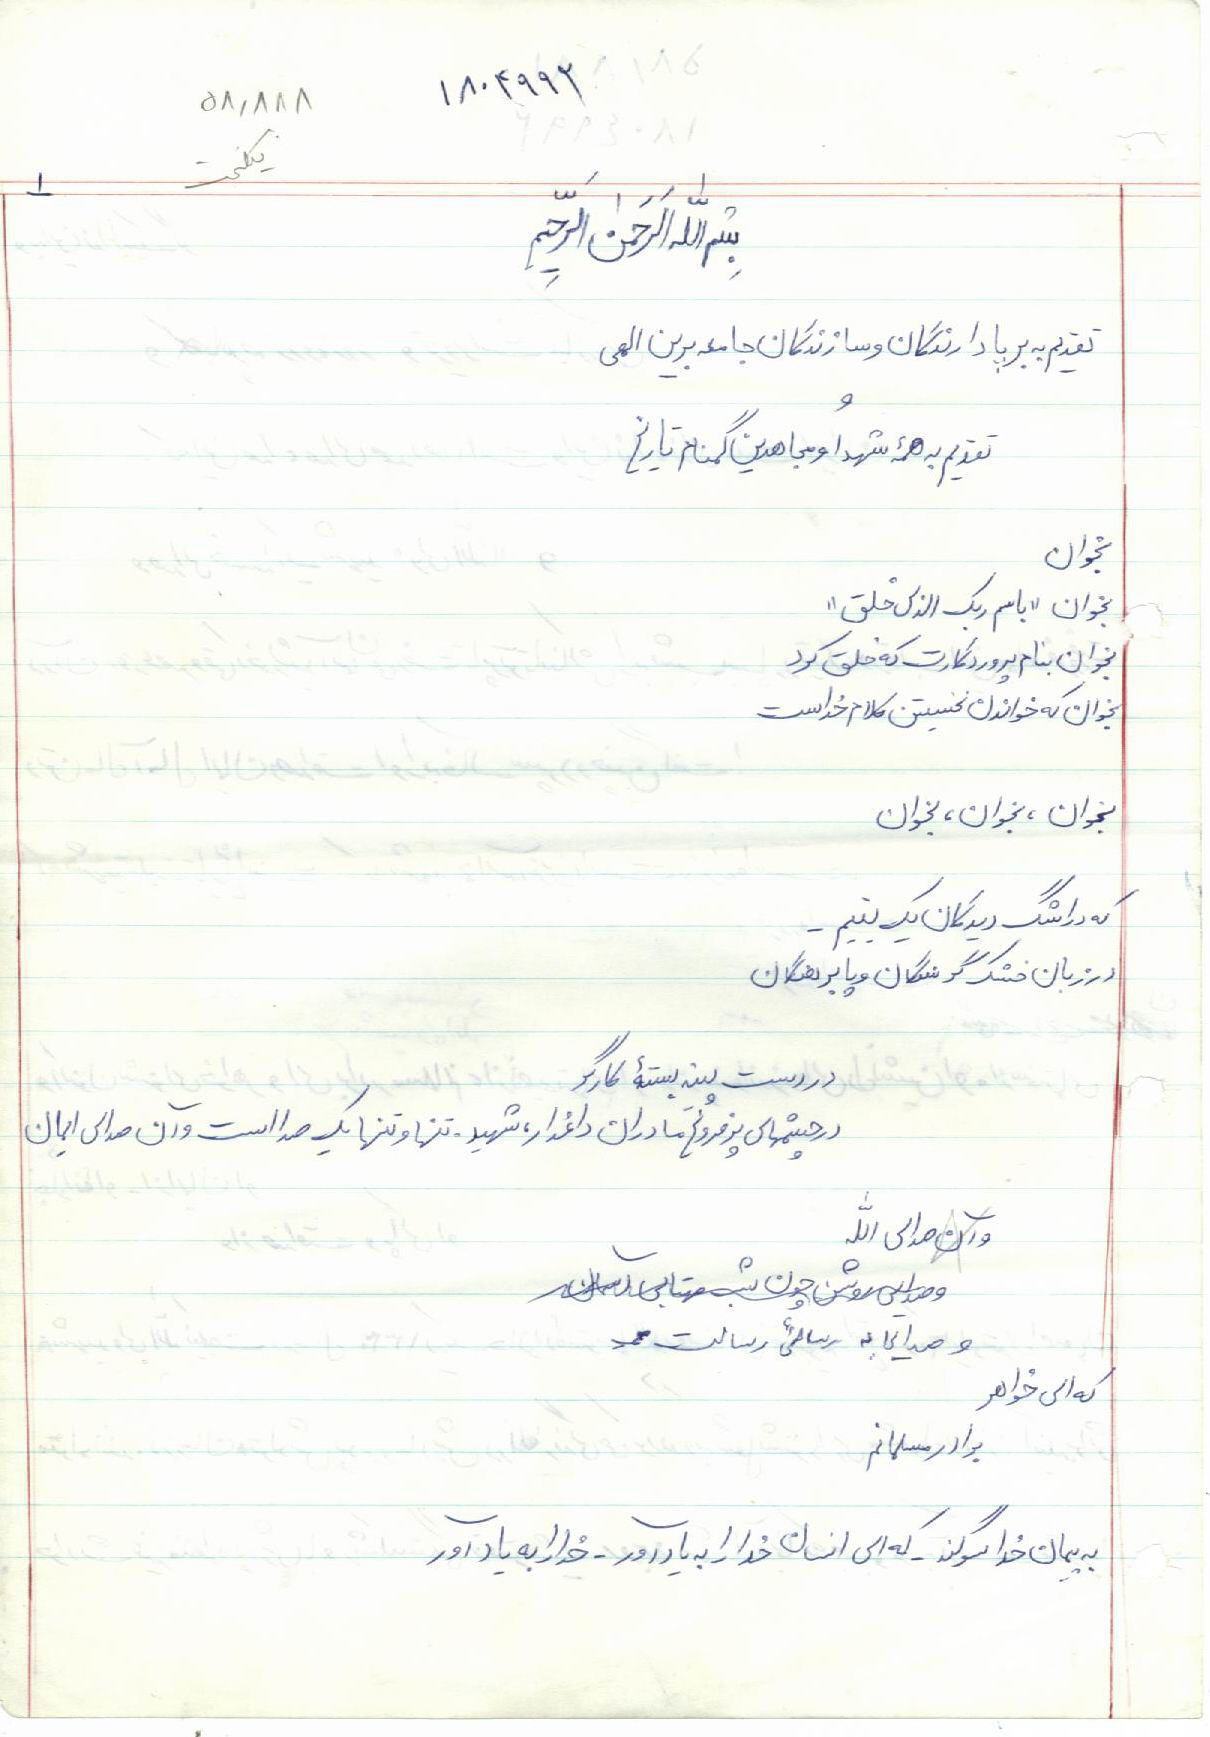 ۱۸۰۴۹۹۲
۵۸,۸۸۸
نیکبخت
۱
بِسْمِ اللَّهِ الرَّحْمٰنِ الرَّحِیمِ
تقدیم به برپا دارندگان و سازندگان جامعه برین الهی
و
تقدیم به همهٔ شهدا و مجاهدین گمنام تاریخ
بخوان
بخوان "باسم ربک الذی خلق"
بخوان بنام پروردگارت که خلق کرد
بخوان که خواندن نخستین کلام خداست
بخوان، بخوان، بخوان
که در اشک دیدگان یک یتیم -
در زبان خشک گرسنگان و پابرهنگان
در دست پینه بستهٔ کارگر
در چشمهای پر فروغ مادران داغدار، شهید - تنها و تنها یک صدا است و آن صدای ایمان
و آن صدای الله
و صدایی روشن چون شب مهتابی آسمان
و صدایی به رسائی رسالت
که ای خواهر
برادر مسلمانم
به پیمان خدا سوگند - که ای انسان خدا را به یاد آور - خدا را به یاد آور